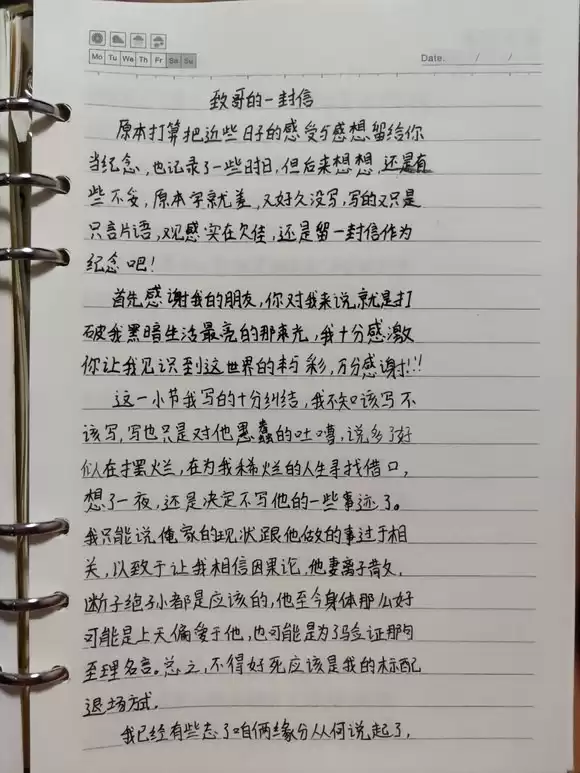 Mo Tu We Th Fr Sa Su
Date. / /
致哥的一封信
原本打算把近些日子的感受与感想留给你
当纪念，也记录了一些时日，但后来想想，还是有
些不妥，原本字就差，又好久没写，写的又只是
只言片语，观感实在欠佳，还是留一封信作为
纪念吧！
首先感谢我的朋友，你对我来说就是打
破我黑暗生活最亮的那束光，我十分感激
你让我见识到这世界的彩，万分感谢！！！
这一小节我写的十分纠结，我不知该写不
该写，写也只是对他愚蠢的吐嘈，说多了好
似在摆烂，在为我稀烂的人生寻找借口，
想了一夜，还是决定不写他的一些事迹了。
我只能说，俺家的现状跟他做的事过于相
关，以致于让我相信因果论，他妻离子散，
断子绝孙都是应该的，他至今身体那么好
可能是上天偏爱于他，也可能是为了验证那句
至理名言。总之，不得好死应该是我的标配
退场方式。
我已经有些忘了咱俩缘分从何说起了，